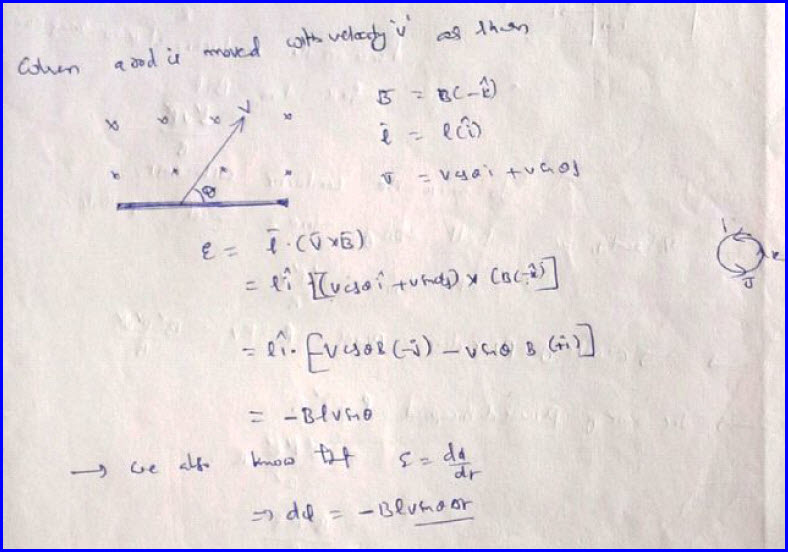 When a rod is moved with velocity 'v' as then
x x x v x
x x x x
θ
B̄ = B(-k̂)
l̄ = l(î)
v̄ = vcosθi + vsinθj
i
k
j
ε = l̄ · (v̄ × B̄)
= lî · [(vcosθî + vsinθj) × (B(-k̂)]
= lî · [vcosθB(-j) - vsinθ B (+i)]
= -Blvsinθ
→ we also know that ε = dϕ/dt
⇒ dϕ = -Blvsinθ dt